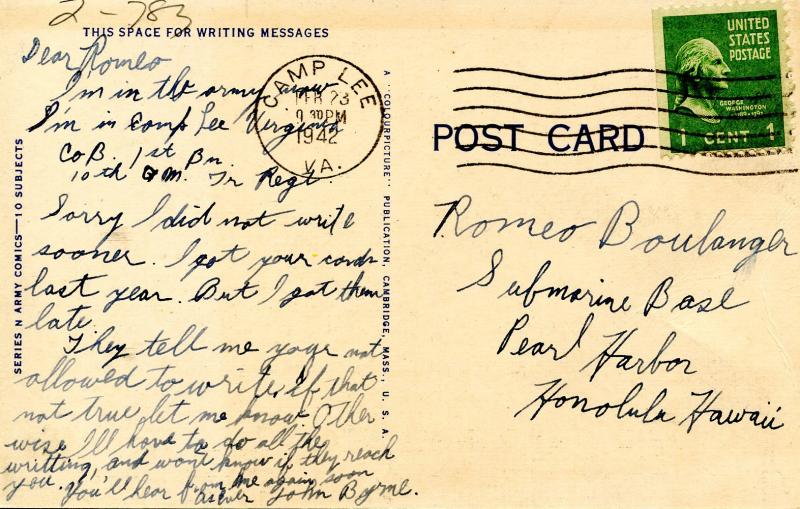 2-783
THIS SPACE FOR WRITING MESSAGES
Dear Romeo
I'm in the army now
I'm in Camp Lee Virginia
Co B. 1st Bn.
10th Q M. Tr Regt.
Sorry I did not write
sooner. I got your cards
last year. But I got them
late.
They tell me your not
allowed to write. If that
not true let me know. Other
wise I'll have to do all the
writting, and wont know if they reach
you. You'll hear from me again soon
as ever John Byrne.
SERIES N ARMY COMICS—10 SUBJECTS
A "COLOURPICTURE" PUBLICATION, CAMBRIDGE, MASS., U. S. A.
CAMP LEE
FEB 23
9 30 PM
1942
VA.
UNITED
STATES
POSTAGE
GEORGE
WASHINGTON
1789-1797
1 CENT 1
POST CARD
Romeo Boulanger
Submarine Base
Pearl Harbor
Honolulu Hawaii